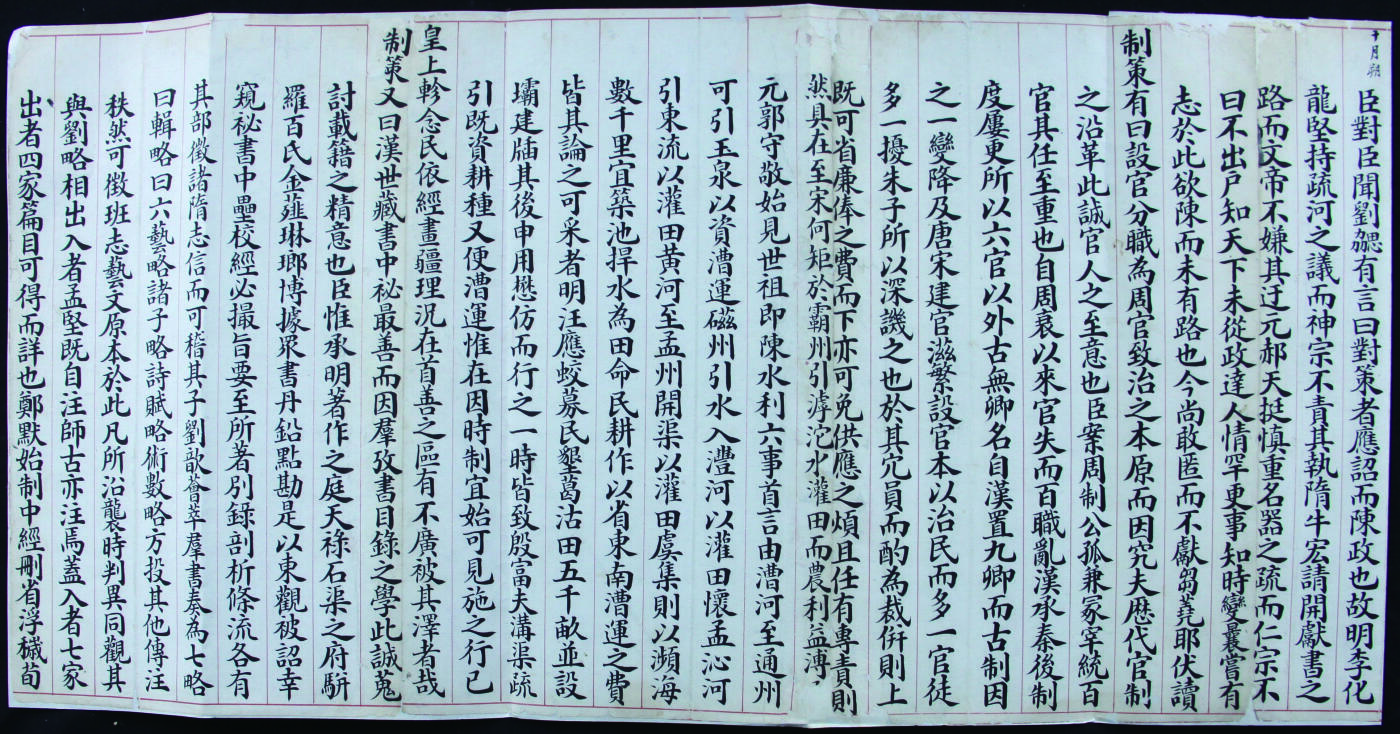 十月朔
臣對臣聞劉勰有言曰對策者應詔而陳政也故明李化
龍堅持疏河之議而神宗不責其執隋牛宏請開獻書之
路而文帝不嫌其迂元郝天挺慎重名器之疏而仁宗不
曰不出戶知天下未從政達人情罕更事知時變曩嘗有
志於此欲陳而未有路也今尚敢匿而不獻芻蕘耶伏讀
制策有曰設官分職為周官致治之本原而因究夫歷代官制
之沿革此誠官人之至意也臣案周制公孤兼冢宰統百
官其任至重也自周衰以來官失而百職亂漢承秦後制
度屢更所以六官以外古無卿名自漢置九卿而古制因
之一變降及唐宋建官滋繁設官本以治民而多一官徒
多一擾朱子所以深譏之也於其冗員而酌為裁併則上
既可省廉俸之費而下亦可免供應之煩且任有專責則
然具在至宋何矩於霸州引滹沱水灌田而農利益溥
元郭守敬始見世祖即陳水利六事首言由漕河至通州
可引玉泉以資漕運磁州引水入灃河以灌田懷孟沁河
引東流以灌田黃河至孟州開渠以灌田虞集則以瀕海
數千里宜築池捍水為田命民耕作以省東南漕運之費
皆其論之可采者明汪應蛟募民墾葛沽田五千畝並設
壩建牐其後申用懋仿而行之一時皆致殷富夫溝渠疏
引既資耕種又便漕運惟在因時制宜始可見施之行已
皇上軫念民依經畫疆理況在首善之區有不廣被其澤者哉
制策又曰漢世藏書中祕最善而因羣攷書目錄之學此誠蒐
討載籍之精意也臣惟承明著作之庭天祿石渠之府駢
羅百氏金薤琳瑯博據眾書丹鉛點勘是以東觀被詔幸
窺祕書中壘校經必撮旨要至所著別錄剖析條流各有
其部徵諸隋志信而可稽其子劉歆薈萃羣書奏為七略
曰輯略曰六藝略諸子略詩賦略術數略方技其他傳注
秩然可徵班志藝文原本於此凡所沿襲時判異同觀其
與劉略相出入者孟堅既自注師古亦注焉蓋入者七家
出者四家篇目可得而詳也鄭默始制中經刪省浮穢荀